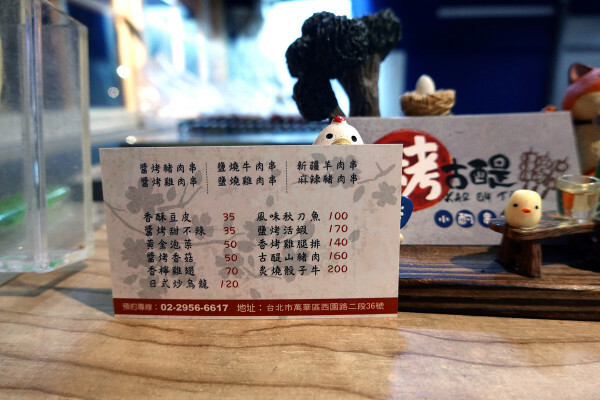 醬烤豬肉串 鹽燒牛肉串 新疆羊肉串
醬烤雞肉串 鹽燒雞肉串 麻辣豬肉串
香酥豆皮 35 風味秋刀魚 100
醬烤甜不辣 35 鹽烤活蝦 170
黃金泡菜 50 香烤雞腿排 140
醬烤香菇 50 古醍山豬肉 160
香檸雞翅 70 炙燒骰子牛 200
日式炒烏龍 120
預約專線：02-2956-6617 地址：台北市萬華區西園路二段36號
烤古醍
小酌